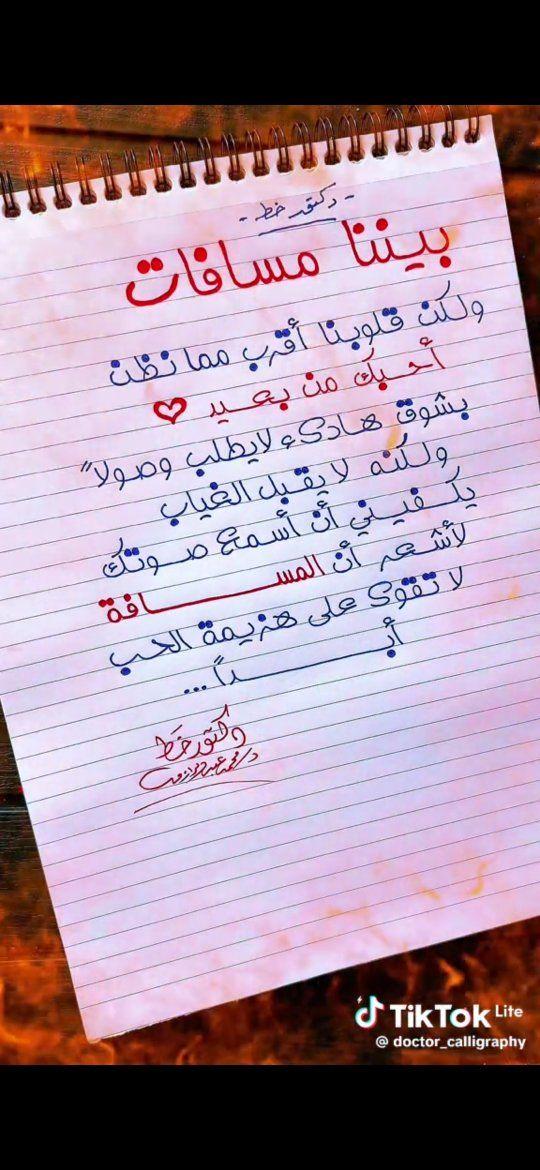 - دكتور خط -
بيننا مسافات
ولكن قلوبنا أقرب مما نظن
أحبك من بعيد ♡
بشوق هادئ لا يطلب وصولاً
ولكنه لا يقبل الغياب
يكفيني أن أسمع صوتك
لأشعر أن المســـــافة
لا تقوى على هزيمة الحب
أبـــــــداً...
دكتور خط
TikTok Lite
@ doctor_calligraphy